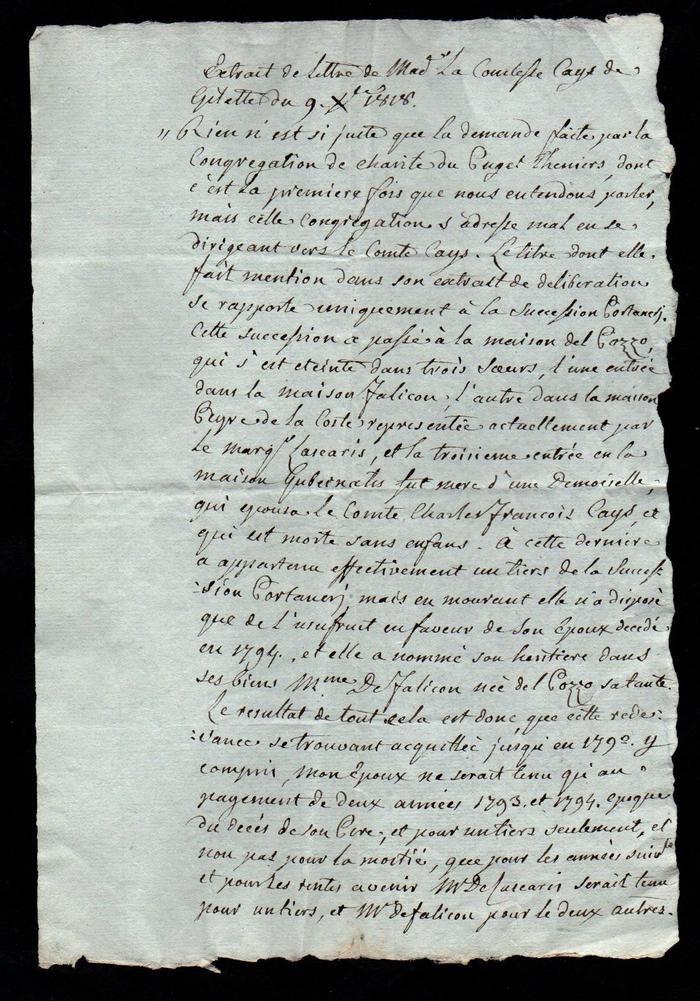 Extrait de lettre de Mad.e La Comtesse Cays de
Gilette du 9. X.re 1818.
" Rien n'est si juste que la demande faite par la
Congregation de charité du Puget Theniers, dont
c'est la premiere fois que nous entendons parler,
mais cette congregation s'adresse mal en se
dirigeant vers le Comte Cays. Le titre dont elle
fait mention dans son extrait de deliberation
se rapporte uniquement à la succession Portanerj.
Cette succession a passé à la maison del Pozzo,
qui s'est eteinte dans trois sœurs, l'une entrée
dans la maison Falicon, l'autre dans la maison
Peyre de la Coste representée actuellement par
Le marq.s Lascaris, et la troisieme entrée en la
maison Gubernatis fut mere d'une Demoiselle,
qui epousa Le Comte Charles François Cays, et
qui est morte sans enfans. À cette derniere
a appartenu effectivement un tiers de la Succes-
:sion Portanerj, mais en mourant elle n'a disposé
que de l'usufruit en faveur de son Epoux decedé
en 1794., et elle a nommé son heritiere dans
ses biens M.me De Falicon née del Pozzo sa tante.
Le resultat de tout cela est donc, que cette rede:
:vance se trouvant acquittée jusqu'en 1792. y
compris, mon Epoux ne serait tenu qu'au
payement de deux années 1793. et 1794. epoque
du decés de son Pere, et pour un tiers seulement, et
non pas pour la moitié, que pour les années suiv.tes
et pour les rentes a venir M.r De Lascaris serait tenu
pour un tiers, et M.r de falicon pour le deux autres.